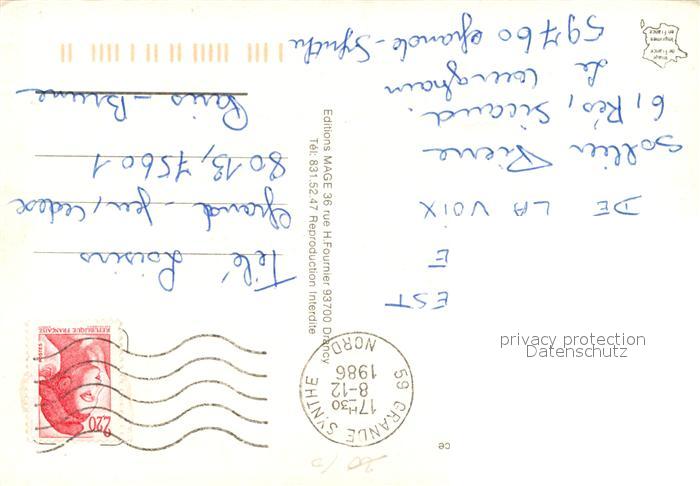 EST
E
DE LA VOIX
Sollier Pierre
6, Rés, Sicaud.
de Courghain
59760 Grande-Synthe
Image
Imprimée
en France
Editions MAGE 36 rue H.Fournier 93700 Drancy
Tél: 831.52.47 Reproduction Interdite
CE
59 GRANDE SYNTHE
17H30
8-12
1986
NORD
2,20
POSTES
REPUBLIQUE FRANÇAISE
Télé Loisirs
Grand-Jeu, cedex
8013, 75601
Paris-Brune
privacy protection
Datenschutz